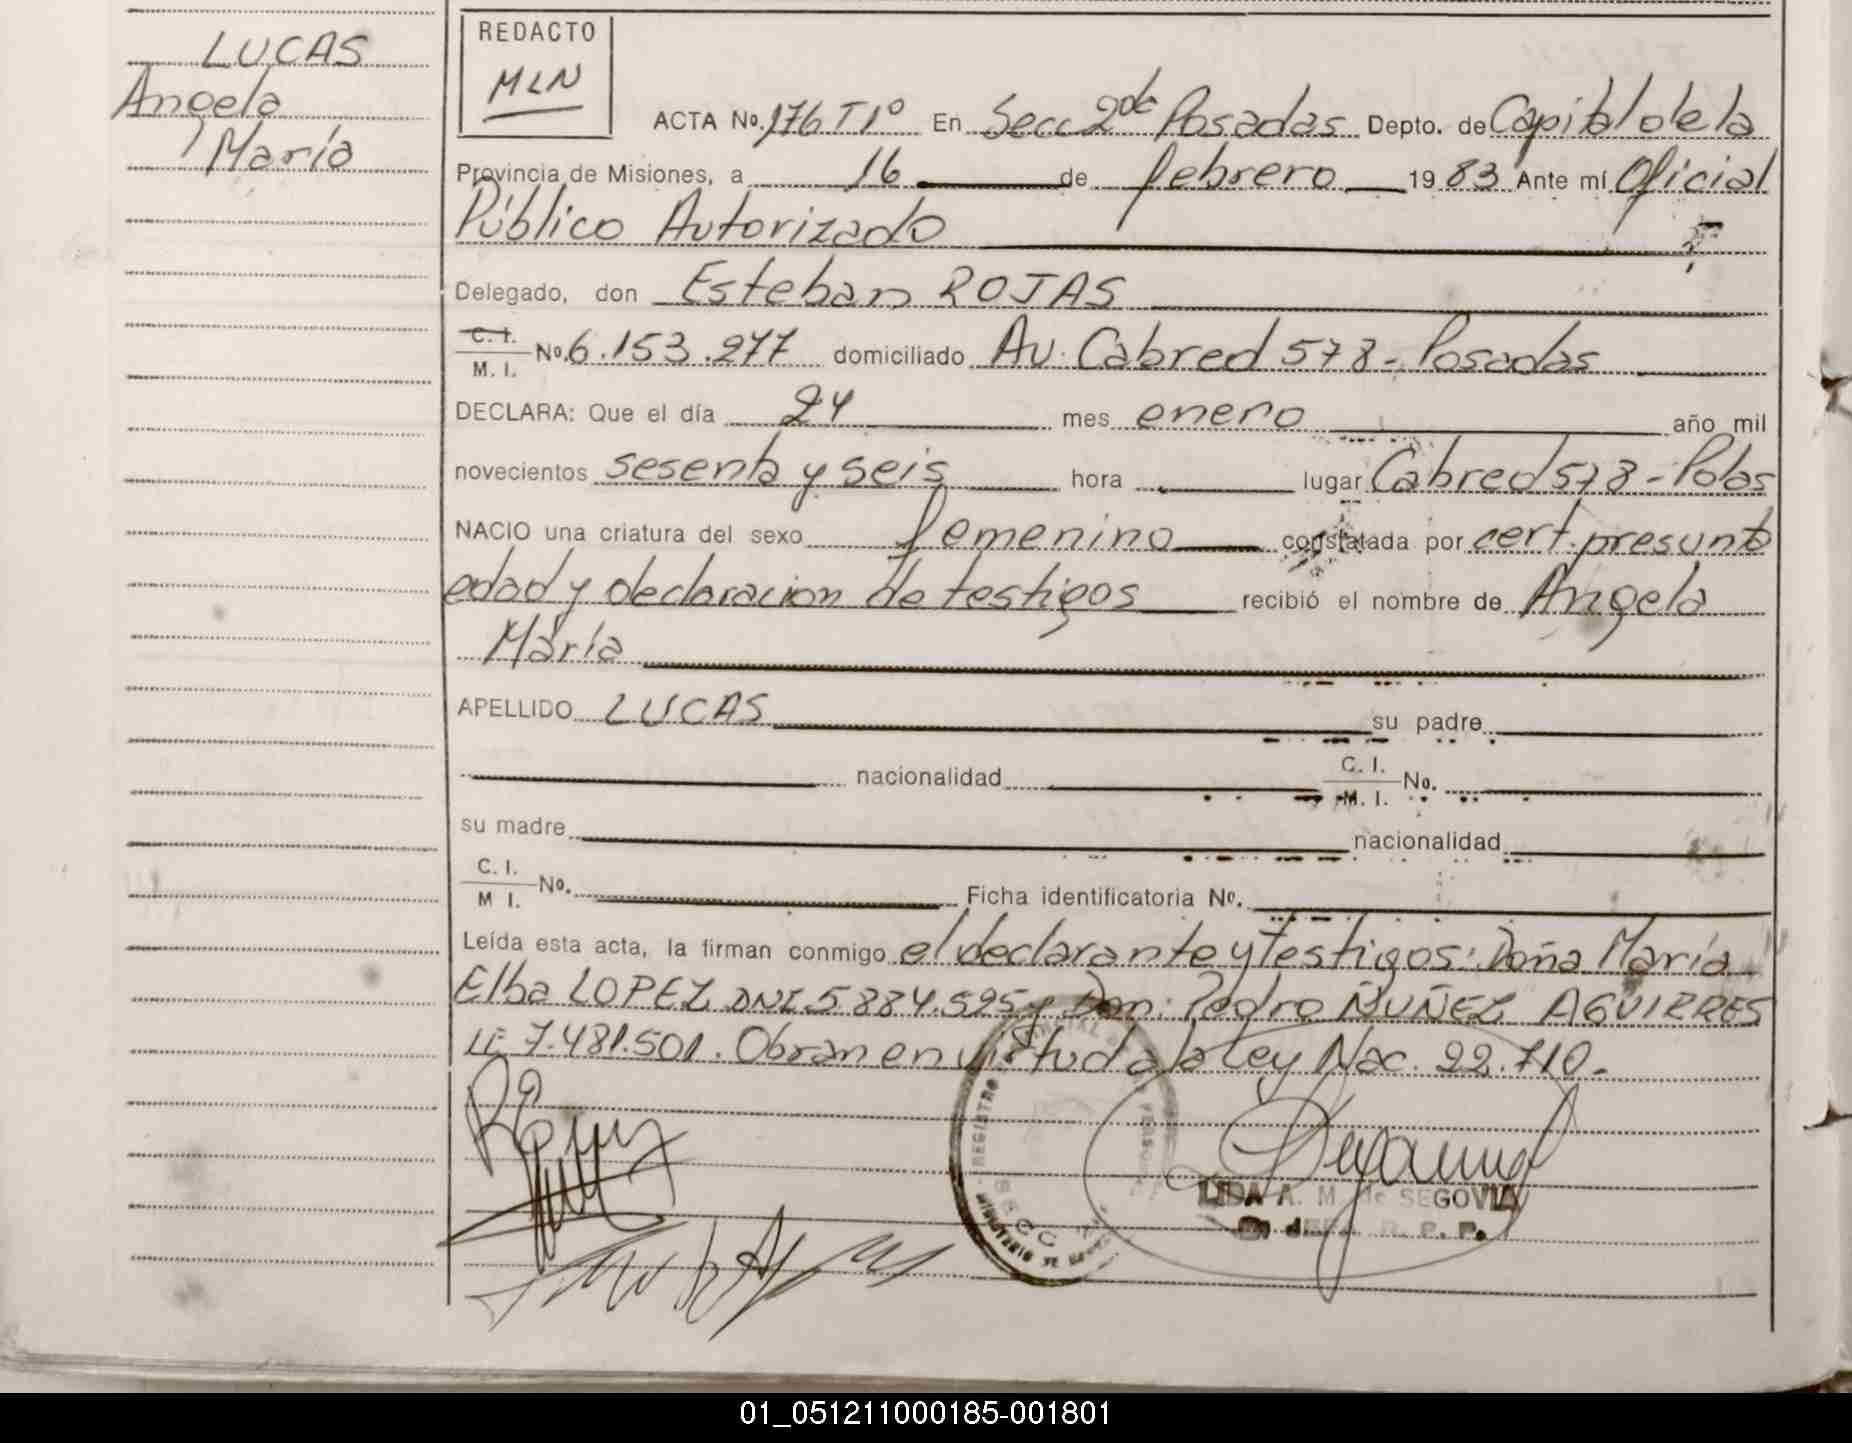 LUCAS
Angela
María
REDACTO
MLN
ACTA No. 176 T1º En Secc 2da Posadas Depto. de Capital de la
Provincia de Misiones, a 16 de febrero 1983 Ante mí Oficial
Público Autorizado
Delegado, don Esteban ROJAS
C. I.
M. I. No. 6.153.277 domiciliado Av. Cabred 578 - Posadas
DECLARA: Que el día 24 mes enero año mil
novecientos sesenta y seis hora lugar Cabred 578 - Pdas
NACIO una criatura del sexo femenino constatada por cert. presunta
edad y declaracion de testigos recibió el nombre de Angela
María
APELLIDO LUCAS su padre
nacionalidad C. I.
M. I. No.
su madre nacionalidad
C. I.
M I. No. Ficha identificatoria No.
Leída esta acta, la firman conmigo el declarante y testigos: Doña María
Elba LOPEZ DNI 5.884.595 y Don: Pedro ÑUÑEZ AGUIRRES
LE 7.481.501. Obran en virtud a la Ley Nac. 22.710.-
REGISTRO
SECC
MINISTERIO DE
LIDA A. M. de SEGOVIA
R. P. P.
01_051211000185-001801